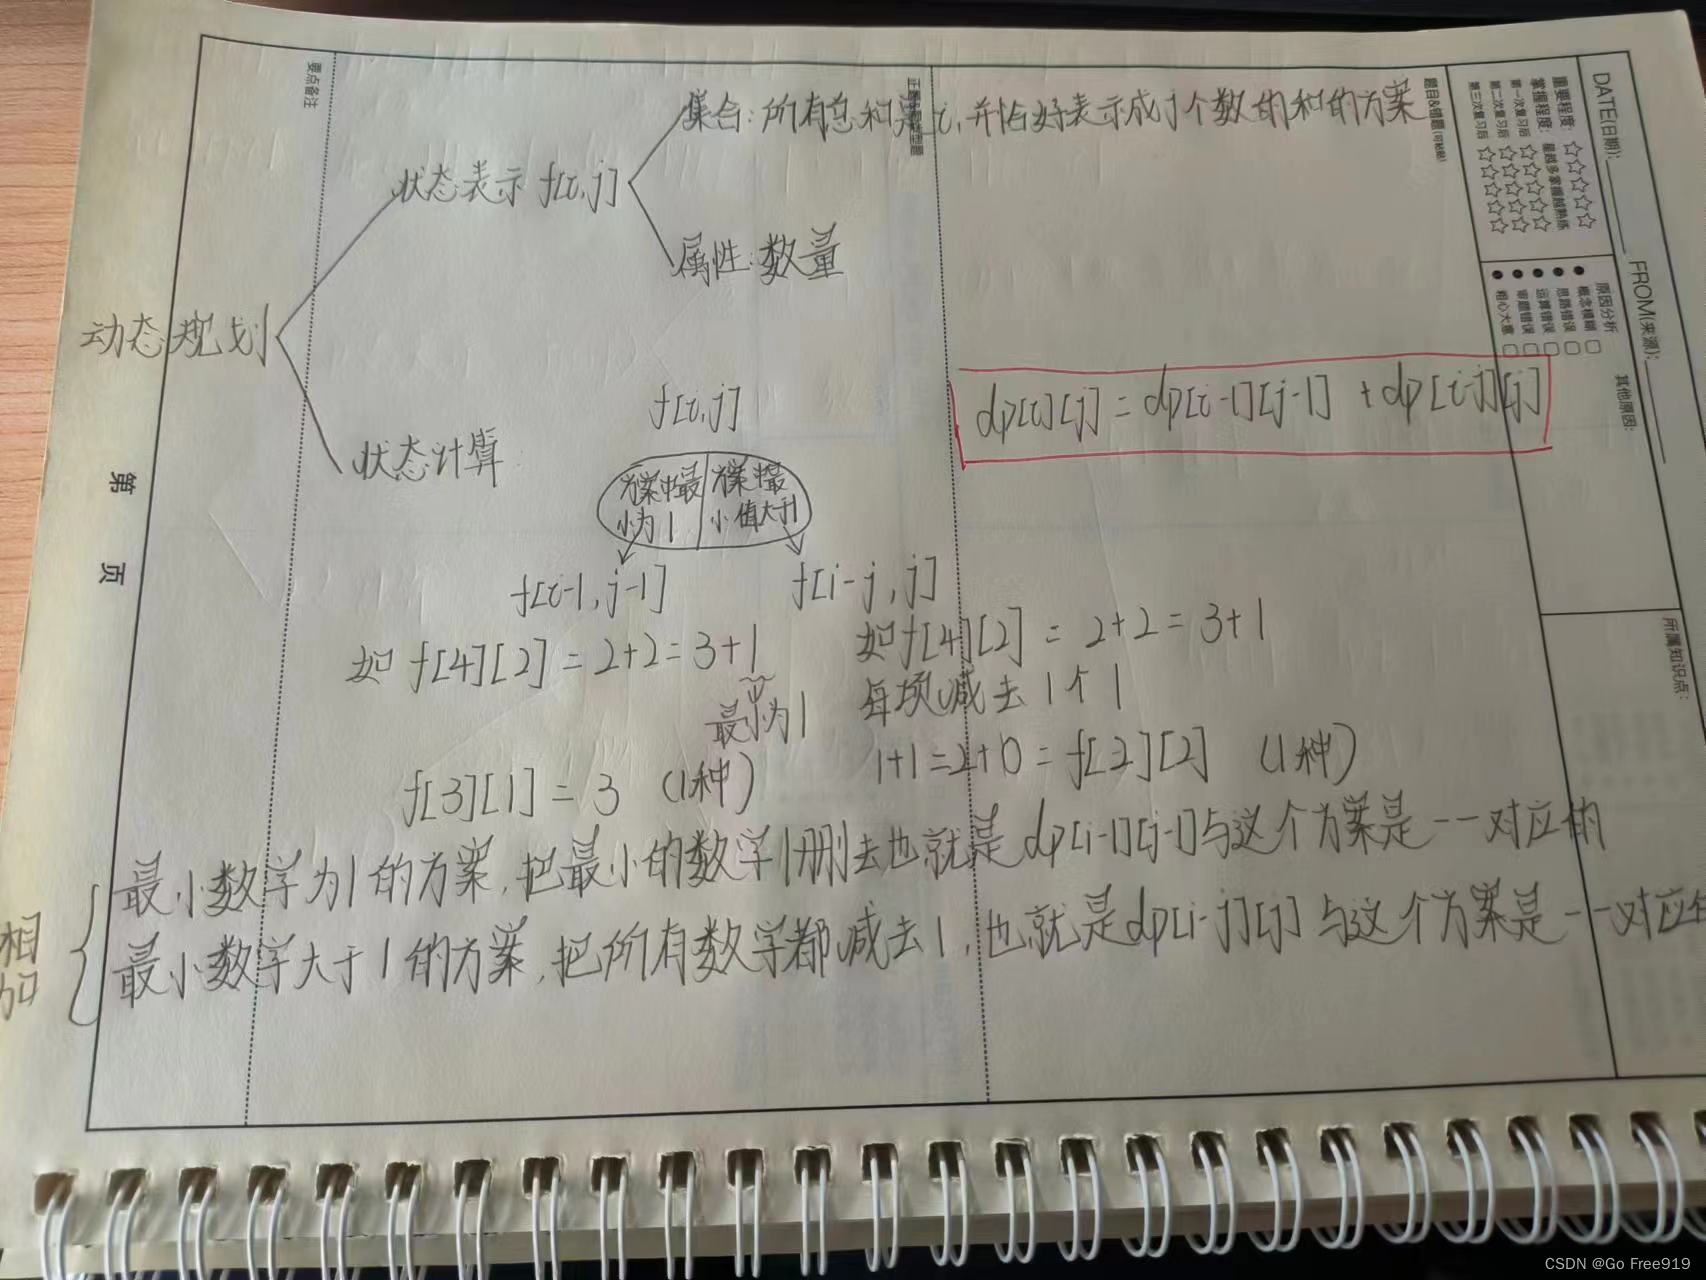 集合:所有总和是i,并恰好表示成j个数的和的方案
状态表示 f[i,j]
属性:数量
动态规划
状态计算:
f[i,j]
dp[i][j] = dp[i-1][j-1] + dp[i-j][j]
方案中最小为1
方案中最小值大于1
f[i-1,j-1]
f[i-j,j]
如 f[4][2] = 2+2 = 3+1
最小为1
f[3][1] = 3 (1种)
如f[4][2] = 2+2 = 3+1
每项减去1个1
1+1=2+0 = f[2][2] (1种)
相加
最小数字为1的方案,把最小的数字1删去也就是dp[i-1][j-1]与这个方案是一一对应的
最小数字大于1的方案,把所有数字都减去1,也就是dp[i-j][j]与这个方案是一一对应的
要点备注
题目&错题(可粘贴)
DATE(日期):
FROM(来源):
重要程度: ☆☆☆☆☆
掌握程度: 星越多掌握越熟练
第一次复习后 ☆☆☆☆☆
第二次复习后 ☆☆☆☆☆
第三次复习后 ☆☆☆☆☆
原因分析
概念模糊
思路错误
运算错误
审题错误
粗心大意
其他原因:
所属知识点:
第 页
CSDN @Go Free919